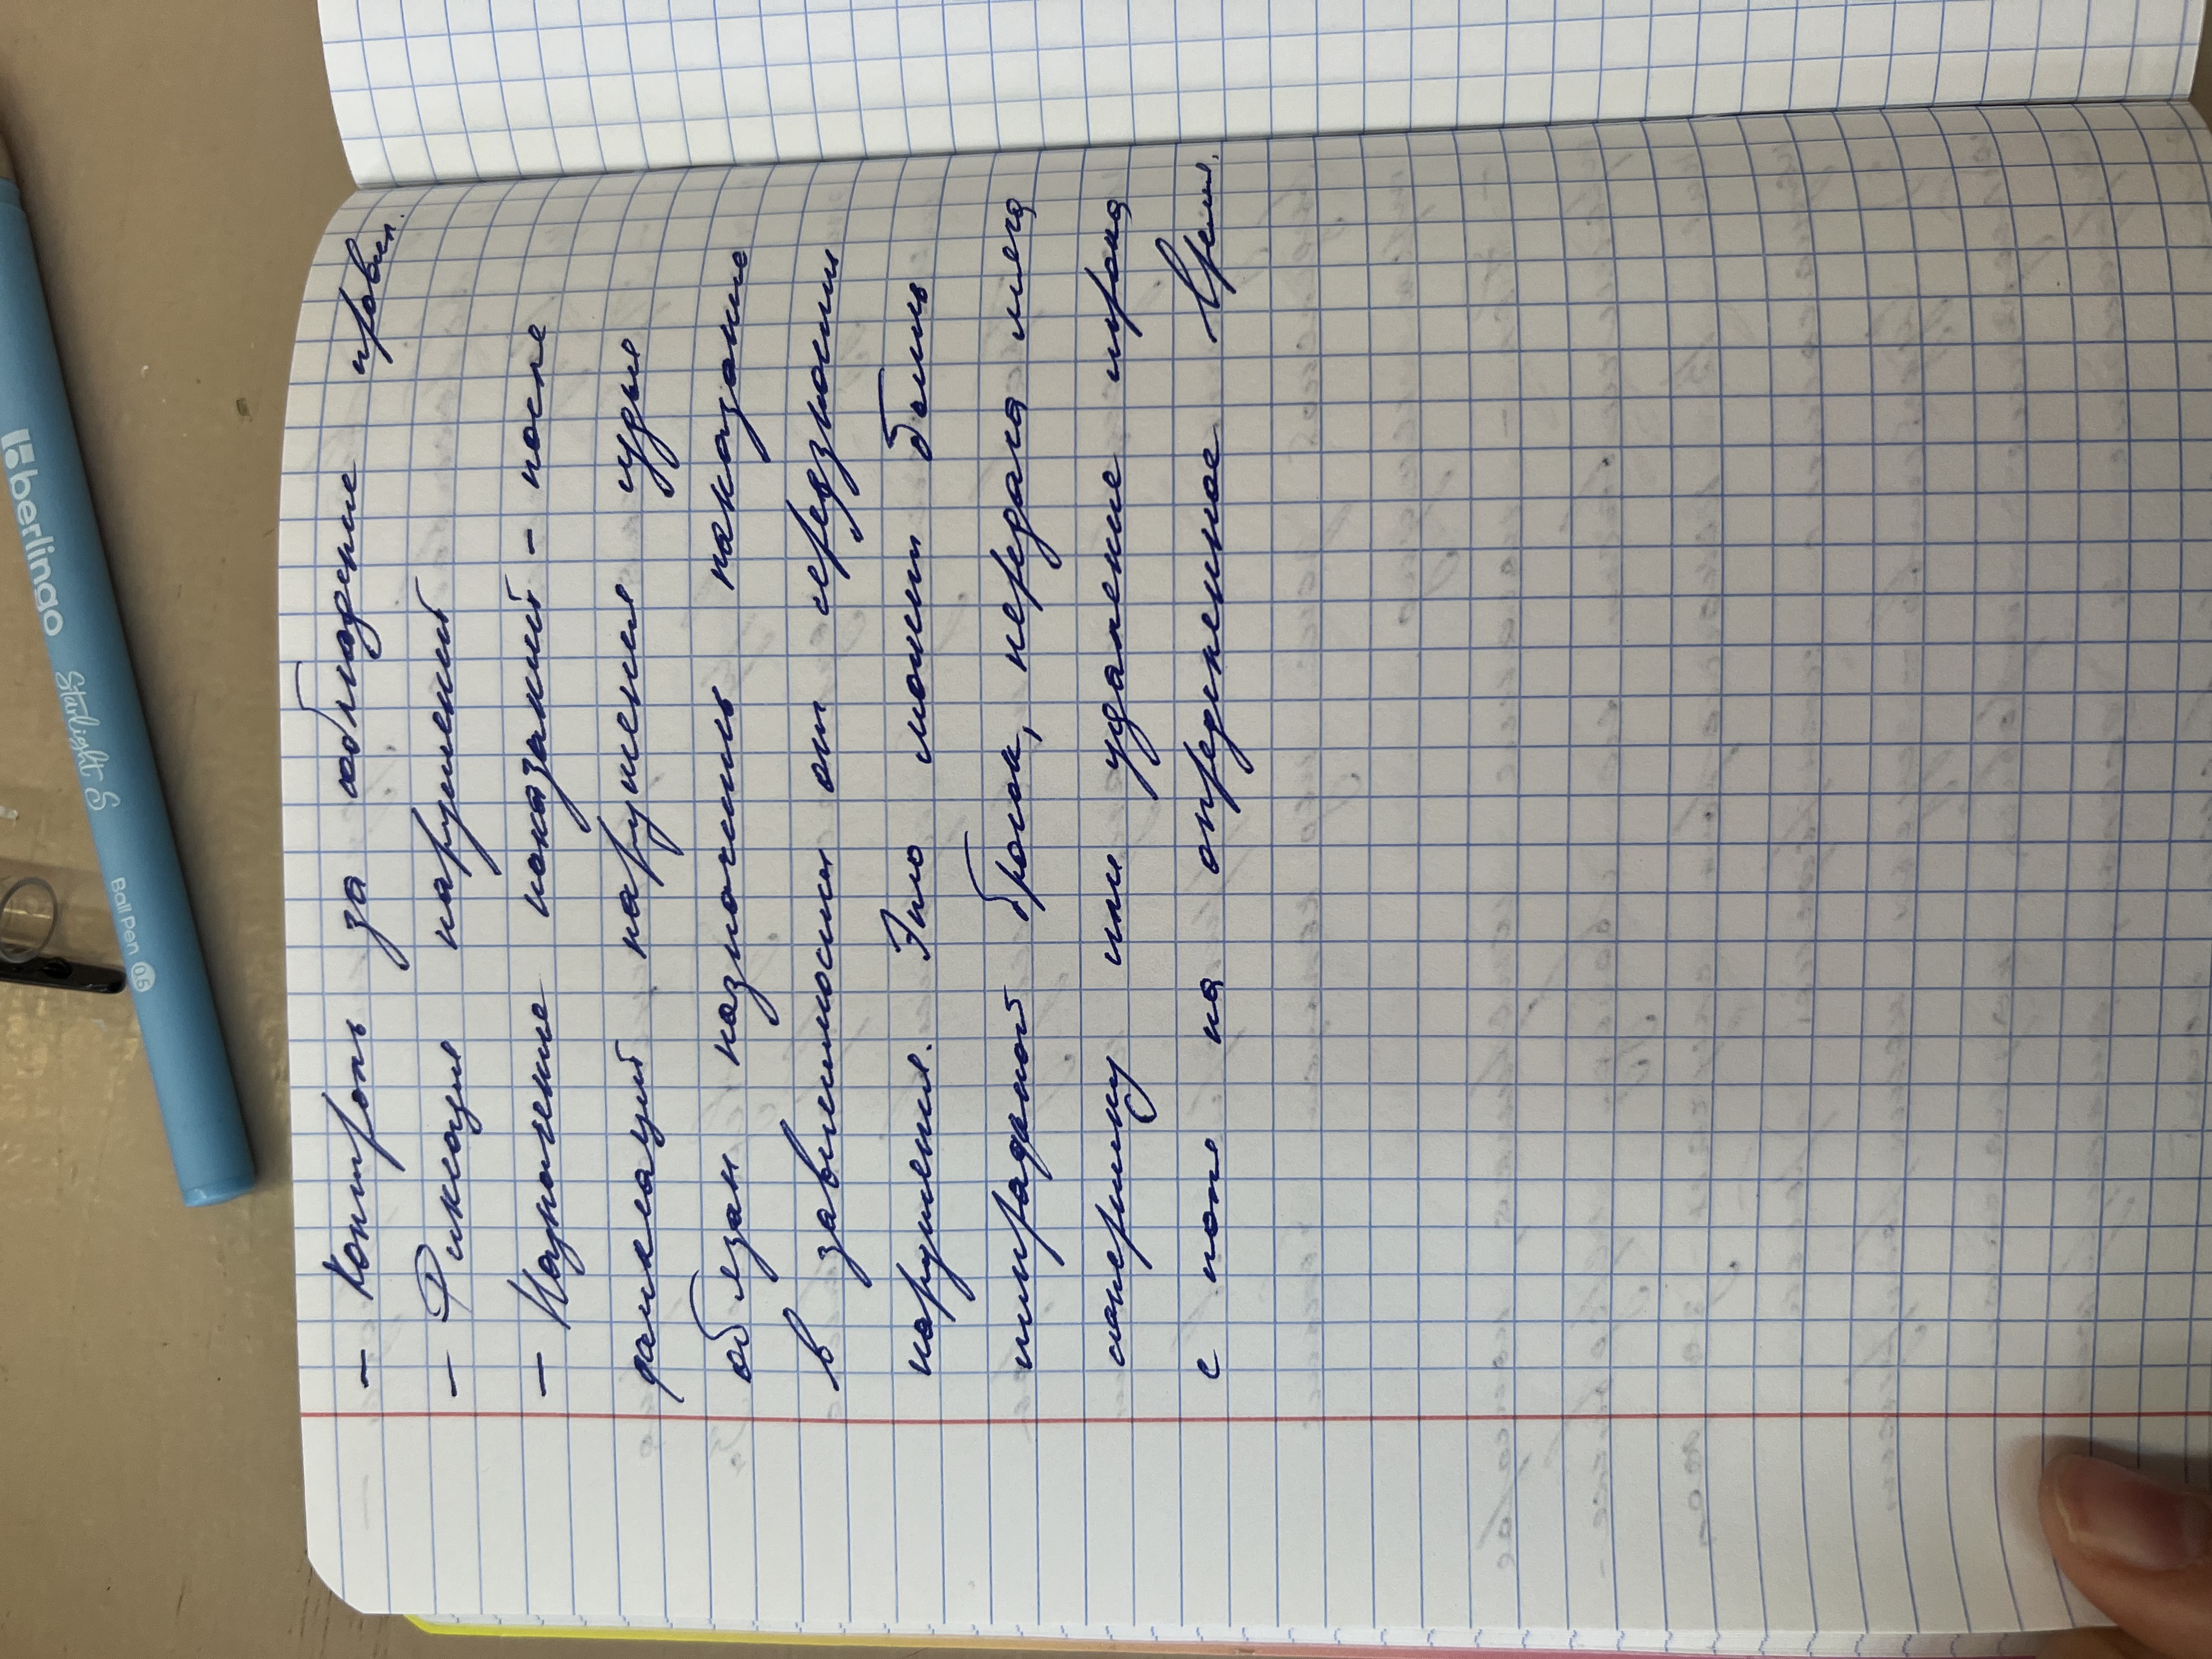 - Контроль за соблюдение правил.
- Фиксация нарушений
- Назначение наказаний - после
фиксаций нарушения судья
обязан назначить наказание
в зависимости от серьезности
нарушения. Это может быть
штрафной бросок, передача мяча
сопернику или удаление игрока
с поля на определенное время.
berlingo Starlight S Ball Pen 0.5